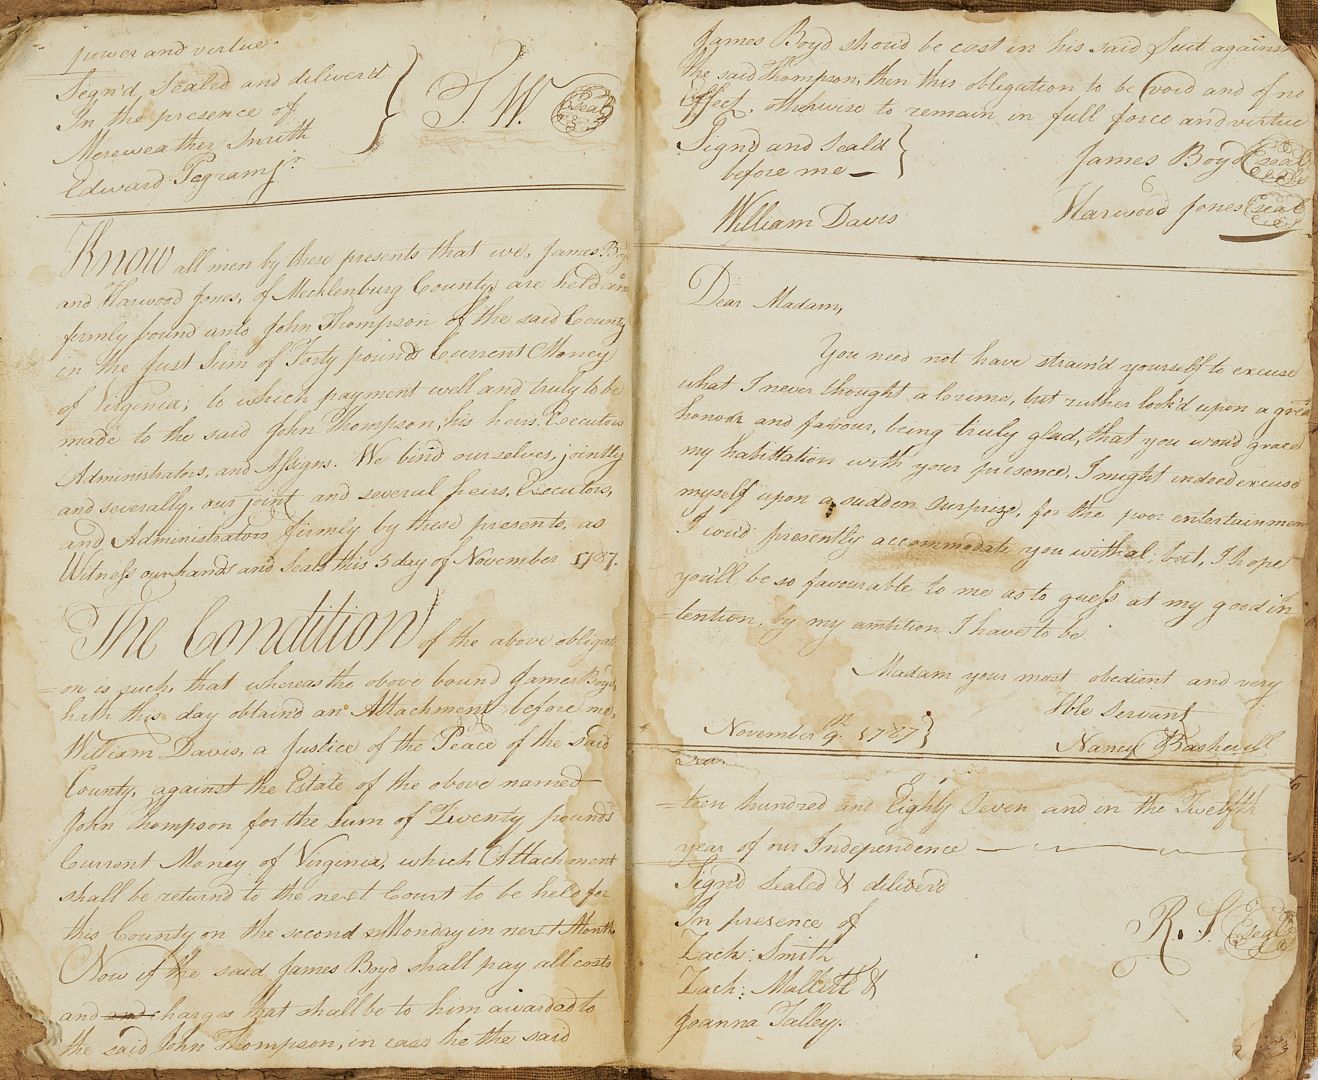 power and virtue.
Sign'd, Sealed and deliver'd
In the presence of
Mereweather Smith
Edward Pegram Jr.
T. W. Seal
Know all men by these presents that we, James Boyd
and Harwood Jones, of Mecklenburg County, are held and
firmly bound unto John Thompson of the said County
in the just Sum of Forty pounds Current Money
of Virginia; to which payment well and truly to be
made to the said John Thompson, his heirs, Executors
Administrators, and Assigns. We bind ourselves, jointly
and severally, our joint and several heirs, Executors,
and Administrators firmly by these presents, as
Witness our hands and Seals this 5 day of November 1787.
The Condition of the above obligati
=on is such, that whereas the above bound James Boyd,
hath this day obtaind an Attachment before me,
William Davis, a Justice of the Peace of the said
County, against the Estate of the above named
John Thompson for the sum of Twenty pounds
Current Money of Virginia, which Attachment
shall be returnd to the next Court to be held for
this County on the second Monday in next Month
Now if the said James Boyd shall pay all costs
and charges that shall be to him awarded to
the said John Thompson, in case he the said
James Boyd shou'd be cast in his said Suit against
the said Thompson, then this obligation to be void and of no
effect, otherwise to remain in full force and virtue
Sign'd and Seal'd
before me
William Davis
James Boyd Seal
Harwood Jones Seal
Dear Madam,
You need not have strain'd yourself to excuse
what I never thought a crime, but rather look'd upon a great
honour and favour, being truly glad, that you wou'd grace
my habittation with your presence, I might indeed excuse
myself upon a sudden surprize, for the poor entertainment
I cou'd presently accommodate you withal; but, I hope
you'll be so favourable to me as to guess at my good in
=tention, by my ambition I have to be
Madam your most obedient and very
Hble Servant
November 9th 1787 Nancy Baskervill
=teen hundred and Eighty Seven and in the Twelfth
year of our Independence
Sign'd Sealed & deliverd
In presence of
Zach: Smith
Zach: Mallett &
Joanna Talley.
R. S. Seal